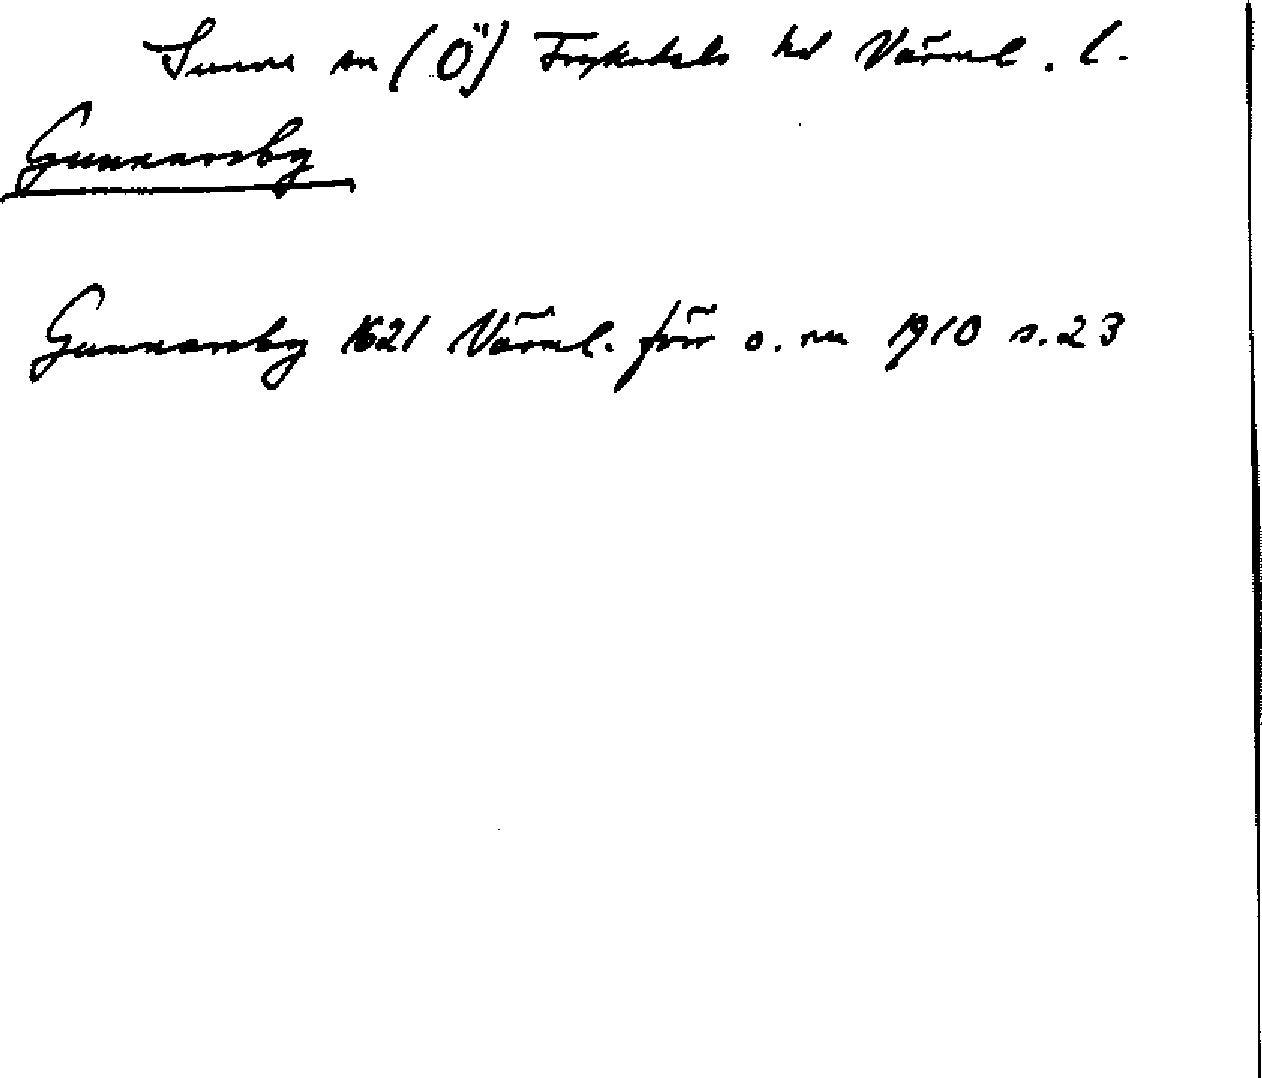 Sunne sn (Ö) Fryksdals hd Värml. l.
Gunnarsby
Gunnarsby 1621 Värml. förr o. nu 1910 s. 23